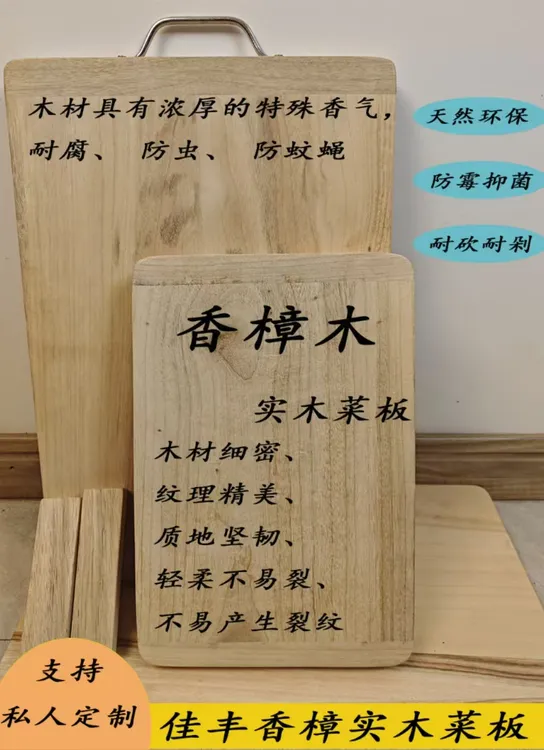 木材具有浓厚的特殊香气,
耐腐、 防虫、 防蚊蝇
天然环保
防霉抑菌
耐砍耐剁
香樟木
实木菜板
木材细密、
纹理精美、
质地坚韧、
轻柔不易裂、
不易产生裂纹
支持
私人定制
佳丰香樟实木菜板